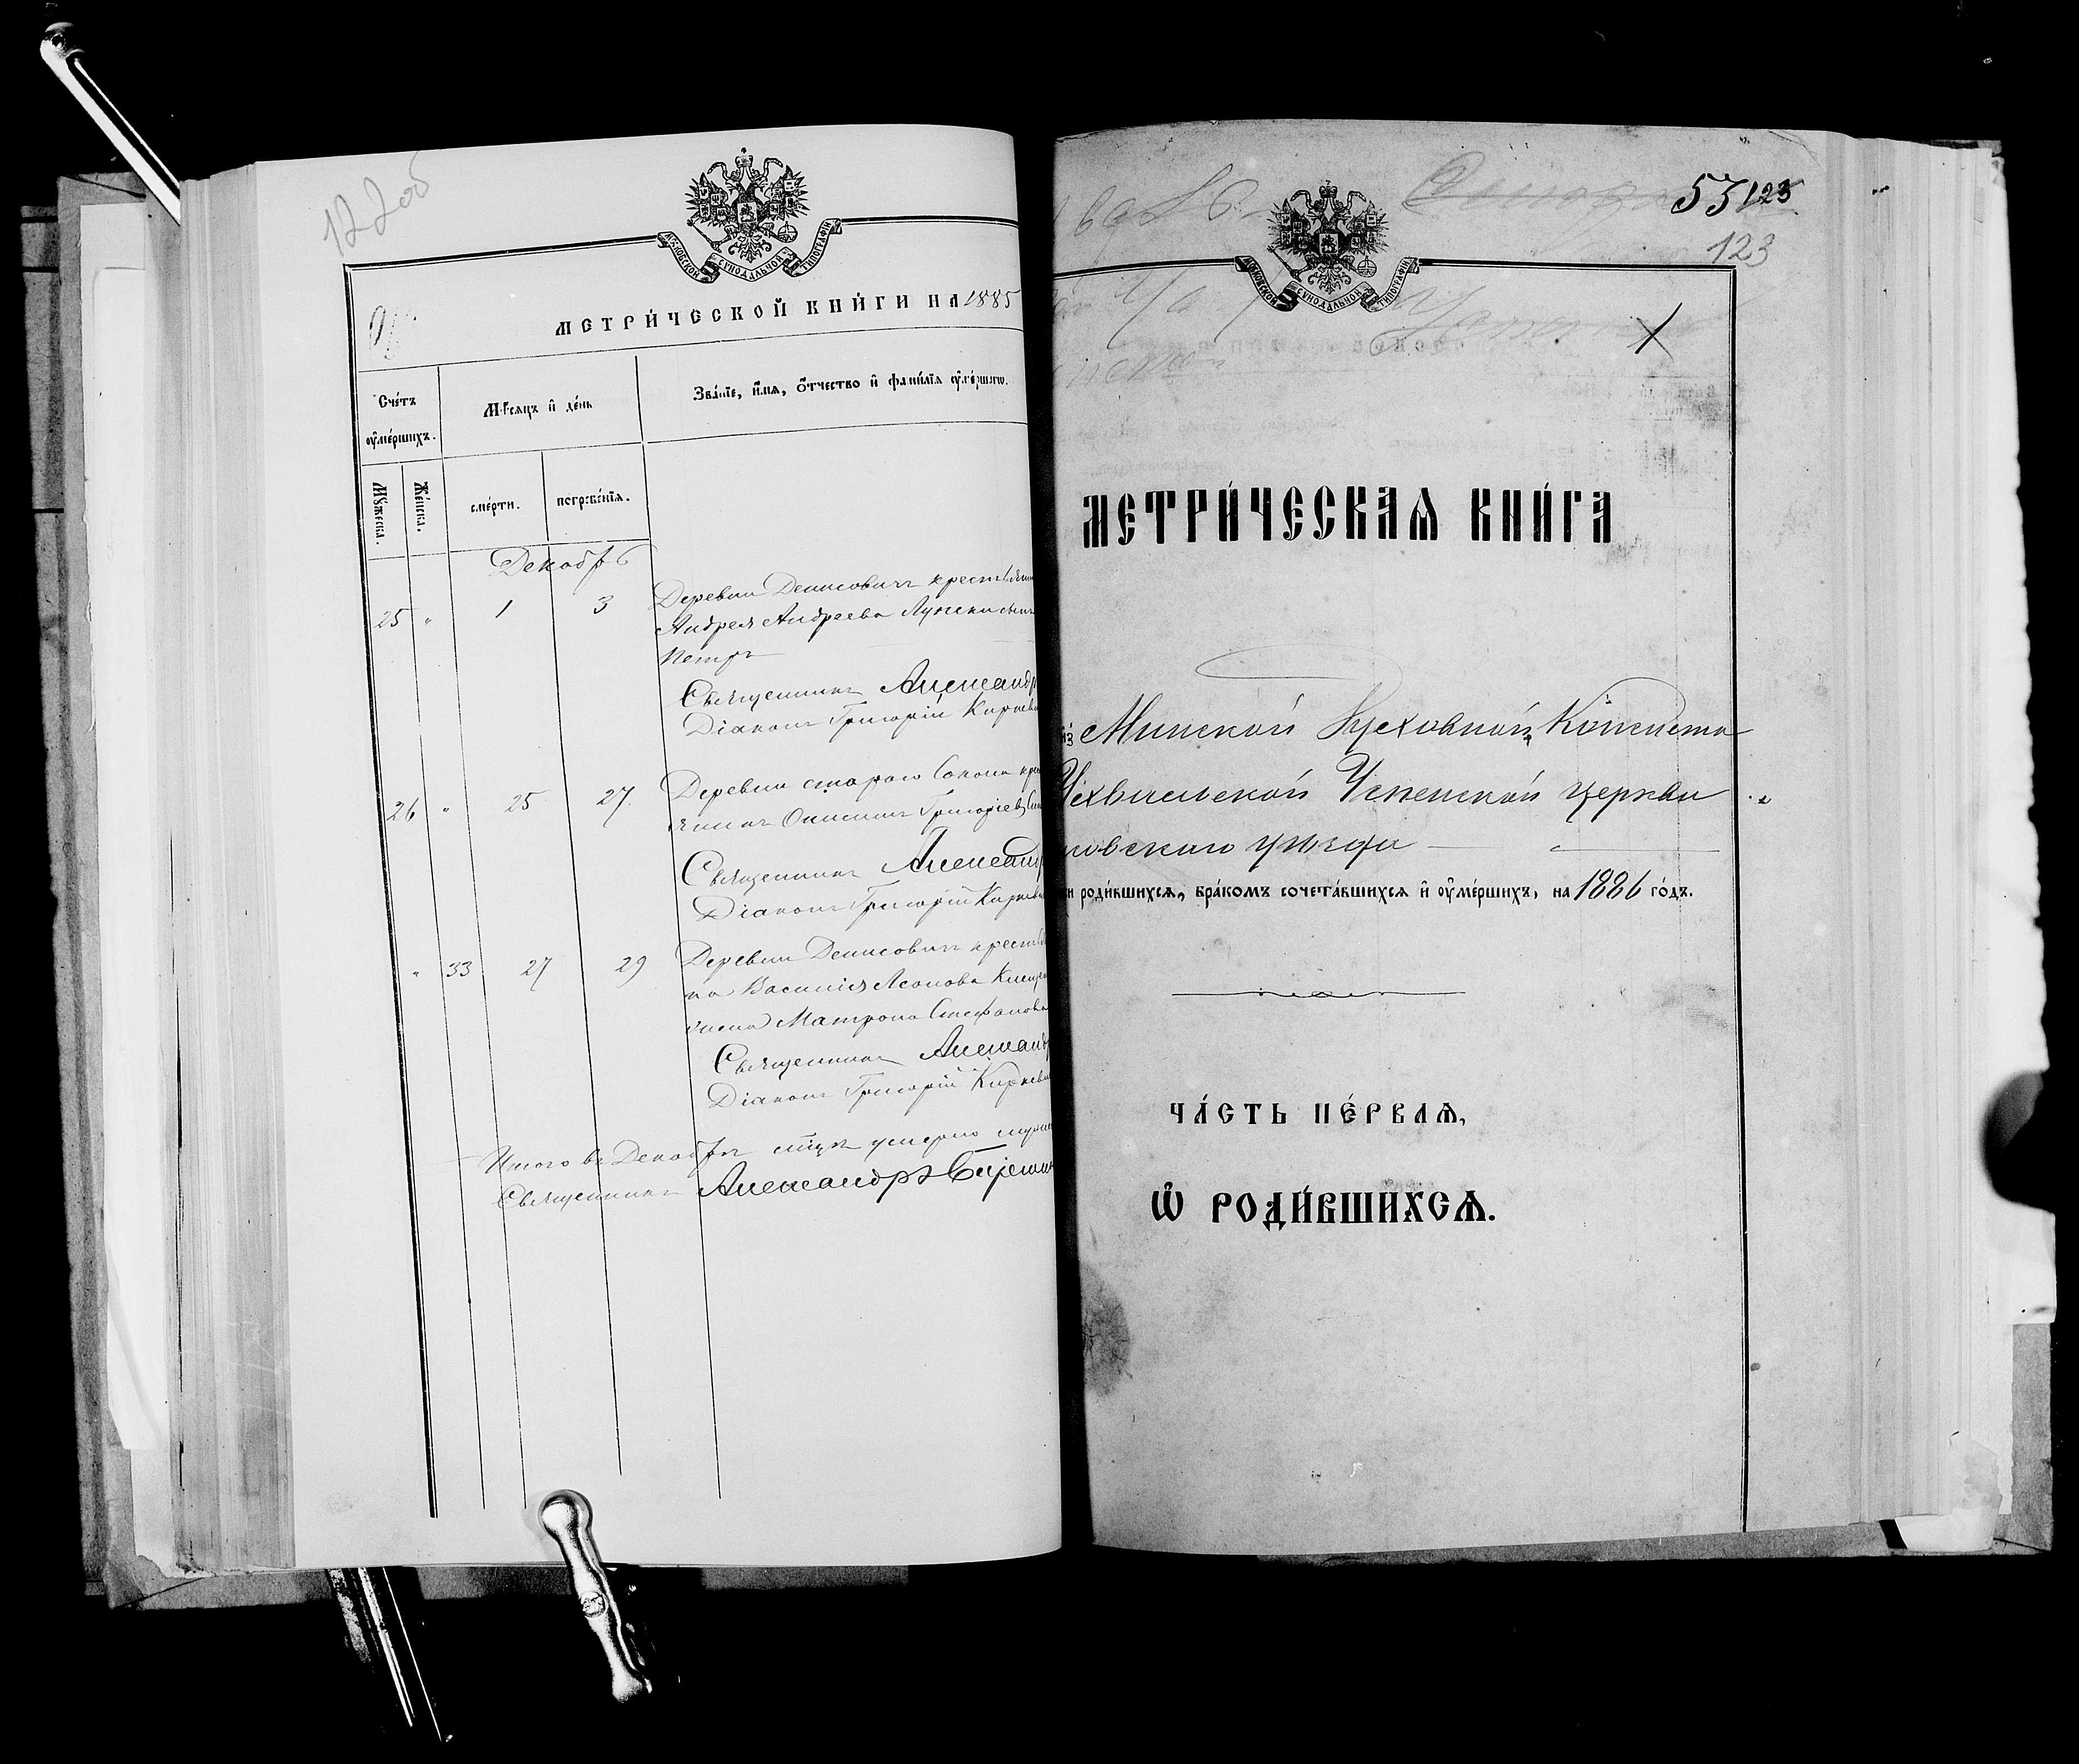 122 об
МОСКОВСКОЙ СѴНОДАЛЬНОЙ ТИПОГРАФІИ
МЕТРИ́ЧЕСКОЙ КНИ́ГИ НА 1885
Сче́тъ оу҆ме́ршихъ.
Мѣ́сяцъ и҆ де́нь
Зва́нїе, и҆́мѧ, ѻ҆́тчество и҆ фами́лїѧ оу҆ме́ршагѡ.
Мꙋ́жеска.
Же́нска.
сме́рти.
погребе́нїѧ.
Декабрь
25 " 1 3 Деревни Денисович крестьяни
Андрея Андреева Лукски сынъ
Петръ
Священникъ Александр
Діаконъ Григорій Киркеви
26 " 25 27 Деревни стараго Сокола кре
янинъ Онисим Григоріев
Священникъ Александр
Діаконъ Григорій Киркеви
" 33 27 29 Деревни Денисович крестья
на Василія Леонова
жена Матрона Стефанова
Священникъ Александр
Діаконъ Григорій Киркеви
Итого въ Декабрѣ мцѣ умерло мужес
Священникъ Александръ
МОСКОВСКОЙ СѴНОДАЛЬНОЙ ТИПОГРАФІИ
53 123
123
МЕТРИ́ЧЕСКАѦ КНИ́ГА
из Минской Духовной Консисто
Ухвальской Успенской церкви
новскаго уѣзда
и роди́вшихсѧ, бра́комъ сочета́вшихсѧ и҆ оу҆ме́ршихъ, на 1886 го́дъ.
ЧА́СТЬ ПЕ́РВАѦ,
Ѡ҆ РОДИ́ВШИХСѦ.